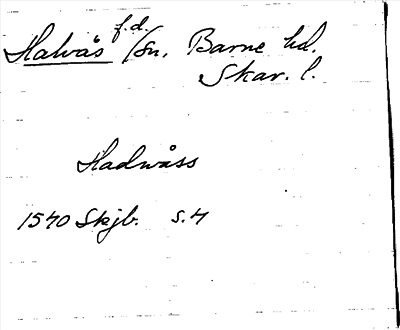 Halvås f.d. /sn. Barne hd.
Skar. l.
Hadwåss
1540 Skjb. s. 4